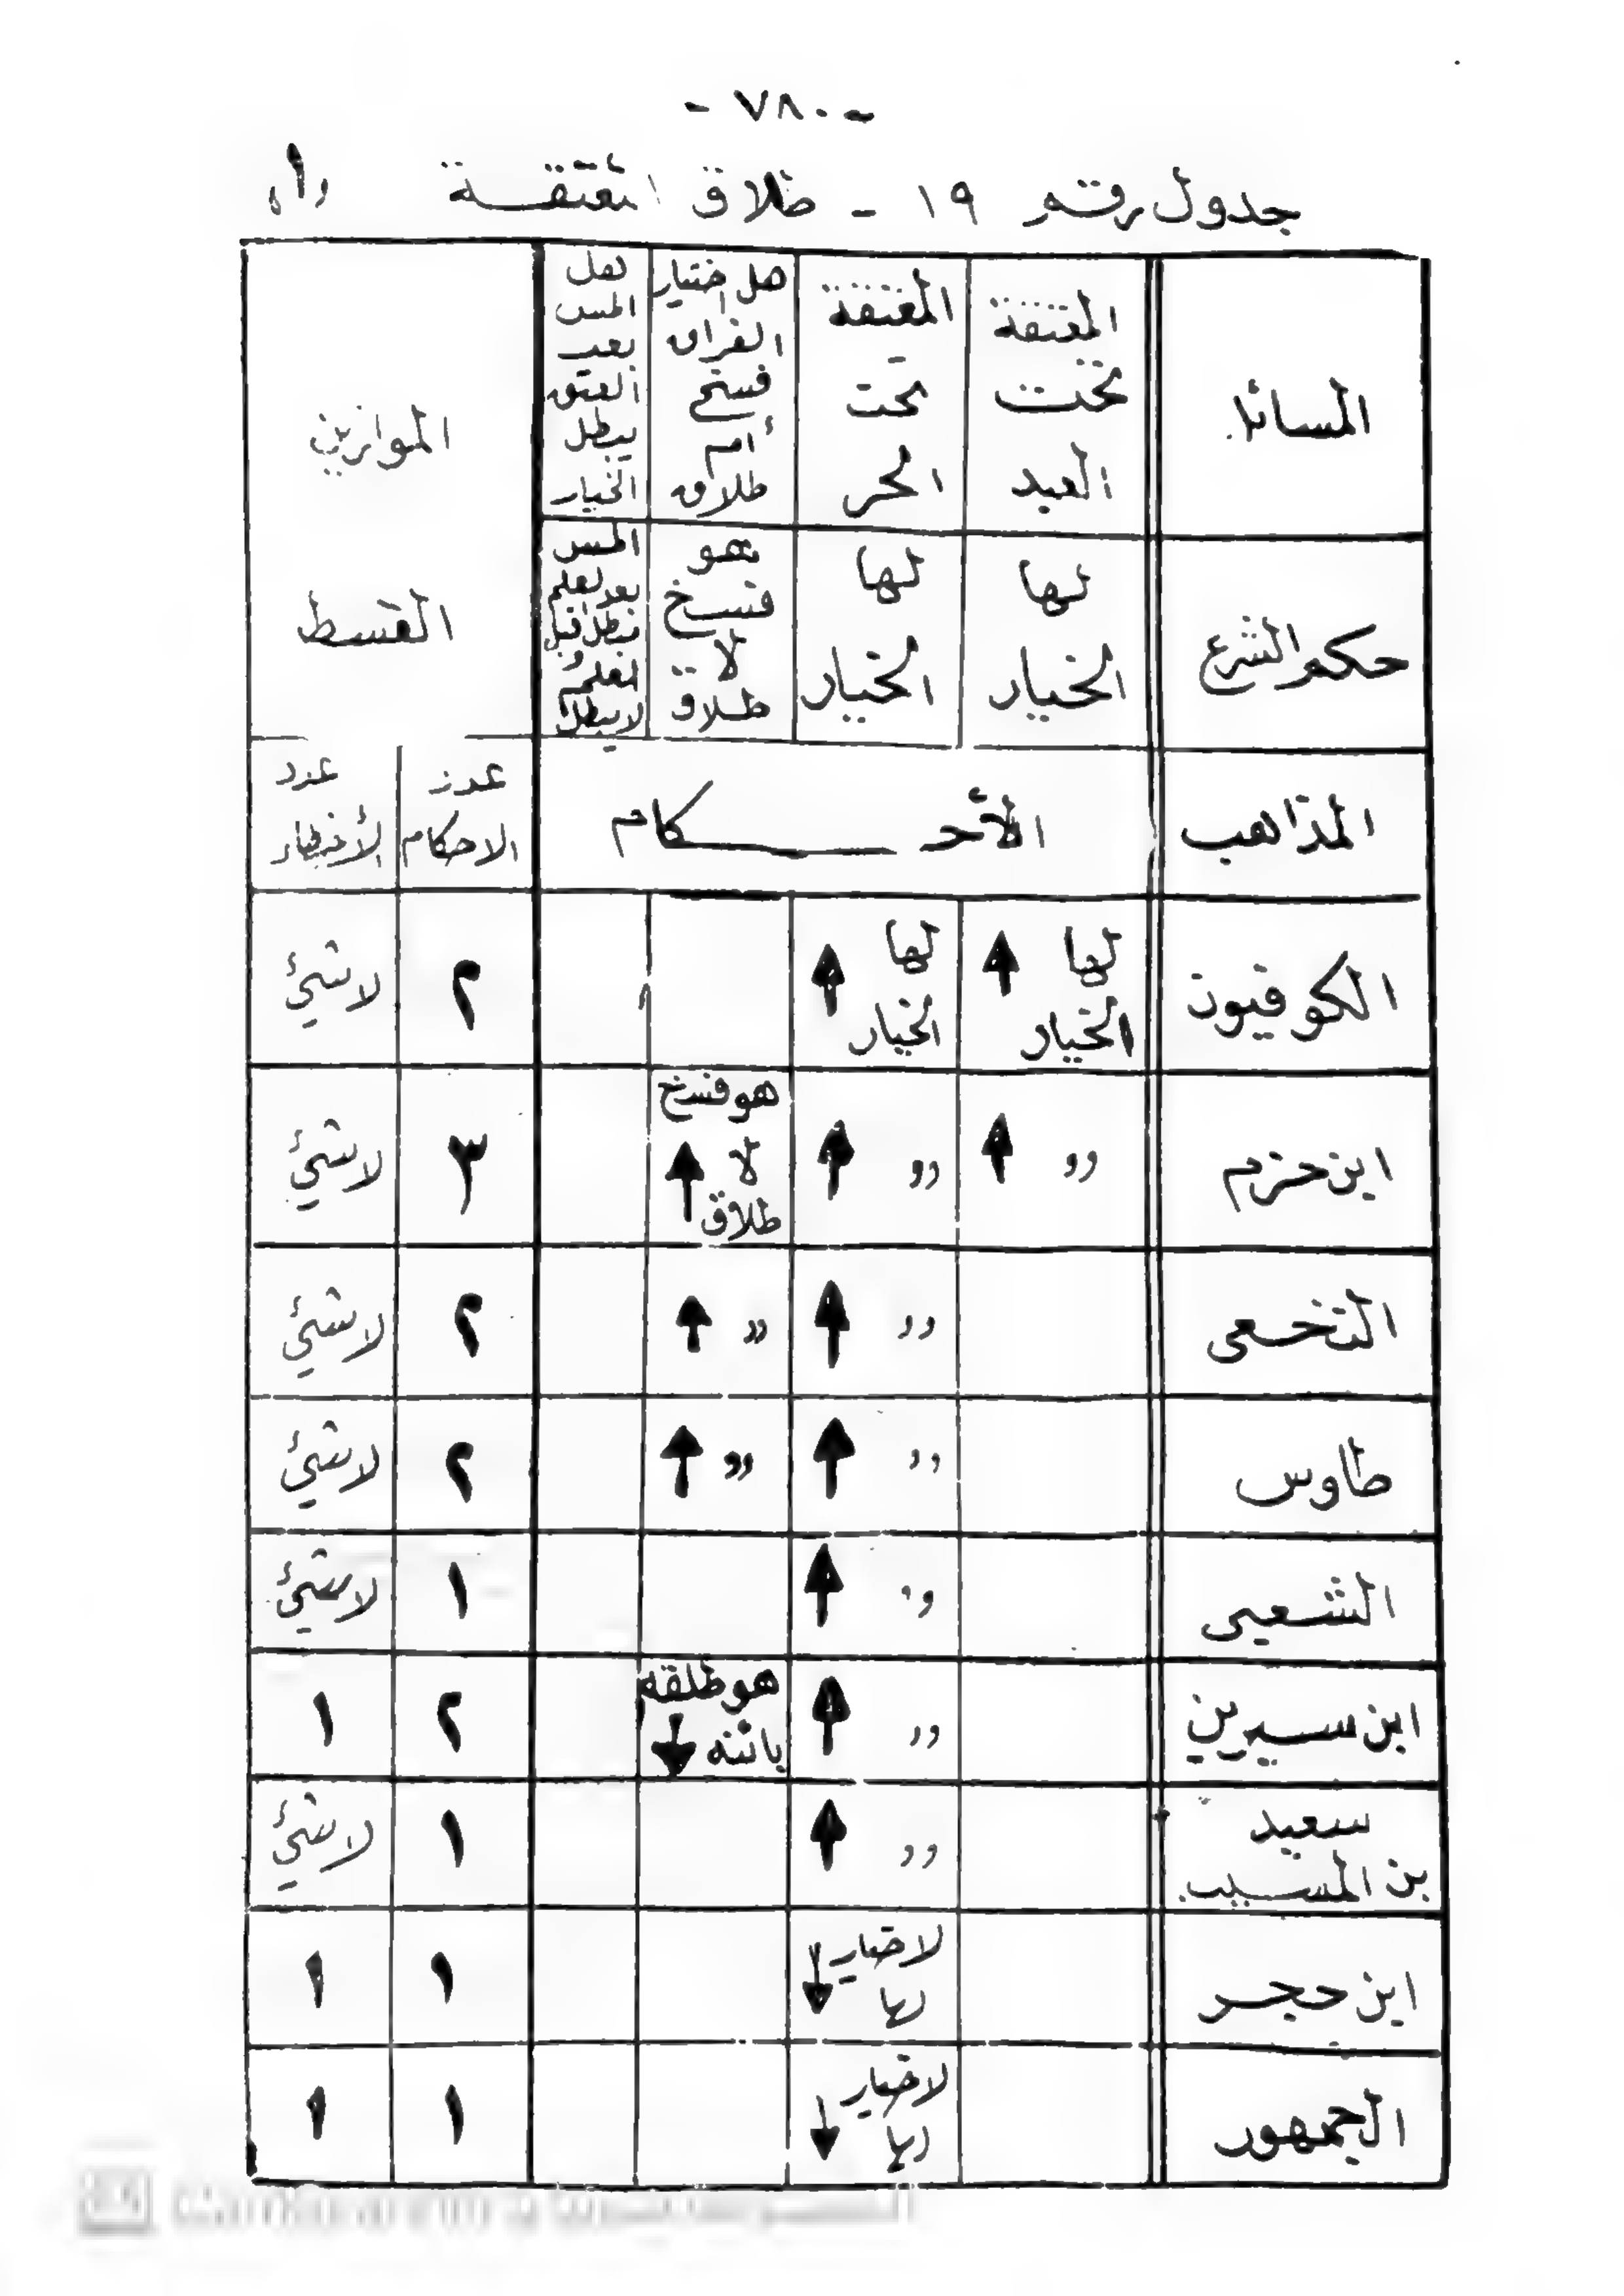 - ٧٨٠ -
جدول رقم ١٩ - طلاق المعتقة (١)
المسائل | المعتقة تحت العبد | المعتقة تحت الحر | هل اختيار الفراق فسخ أم طلاق | هل المس بعد العتق يبطل الخيار | الموازين
حكم الشرع | لها الخيار | لها الخيار | هو فسخ لا طلاق | المس بعد لعلم يبطل قبل لعلم لا يبطل | القسط
المذاهب | الأحكام | عدد الاحكام | عدد الأخطاء
الكوفيون | لها الخيار ↑ | لها الخيار ↑ | ٢ | لا شئ
ابن حزم | ,, ↑ | ,, ↑ | هو فسخ لا طلاق ↑ | ٣ | لا شئ
النخعى | ,, ↑ | ,, ↑ | ٢ | لا شئ
طاوس | ,, ↑ | ,, ↑ | ٢ | لا شئ
الشعبى | ,, ↑ | ١ | لا شئ
ابن سيرين | ,, ↑ | هو طلقه بائنه ↓ | ٢ | ١
سعيد بن المسيب | ,, ↑ | ١ | لا شئ
ابن حجر | لا خيار لها ↓ | ١ | ١
الجمهور | لا خيار لها ↓ | ١ | ١